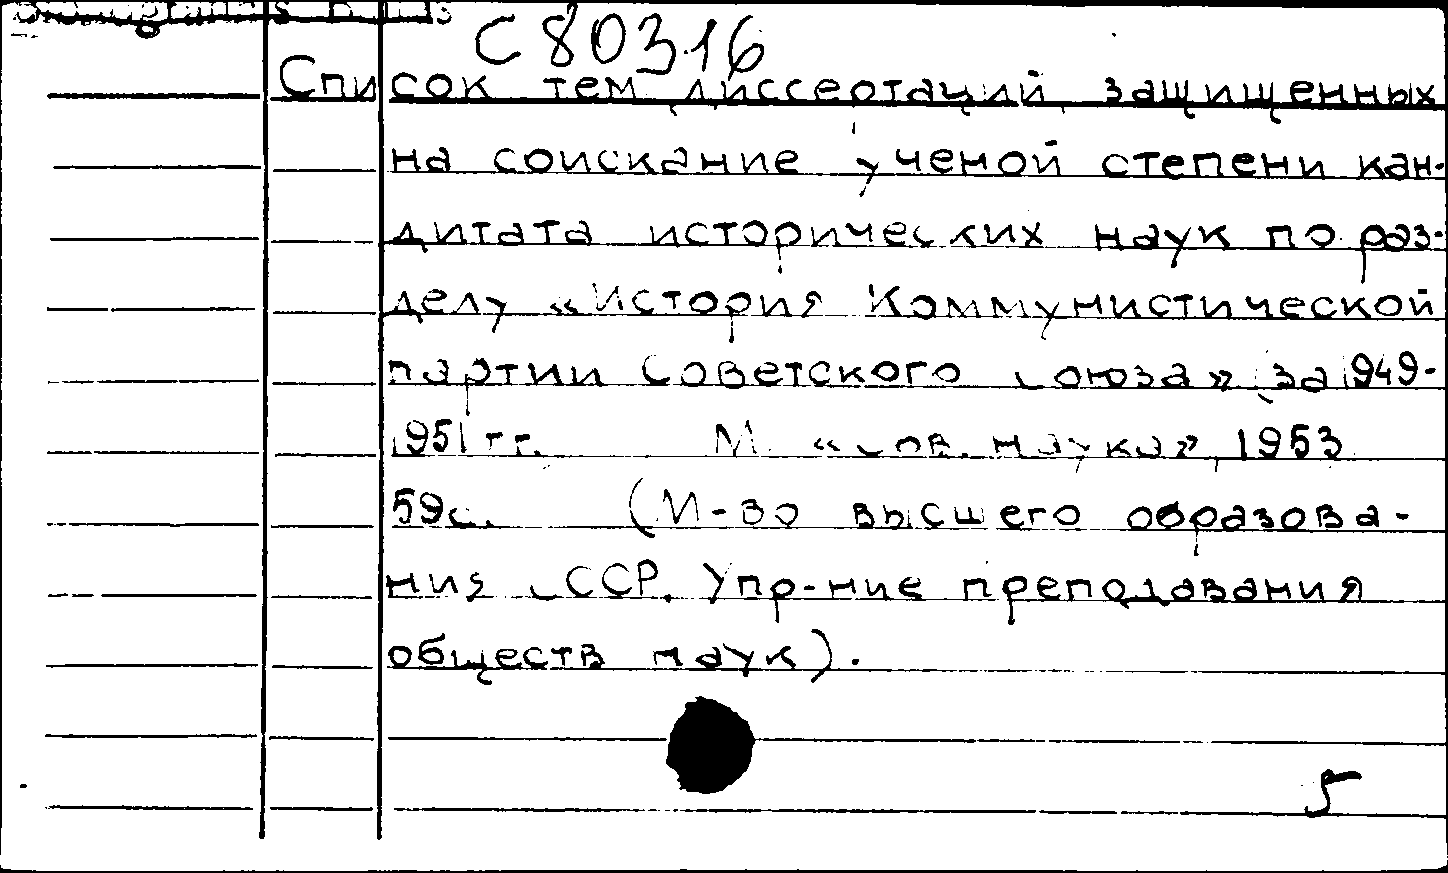 С80316
Список тем диссертаций, защищенных
на соискание ученой степени кан-
дитата исторических наук по раз-
делу «История Коммунистической
партии Советского Союза» за 1949-
1951 гг. М. «Сов. наука», 1953
59с. (М-во высшего образова-
ния СССР. Упр-ние преподавания
обществ наук).
5